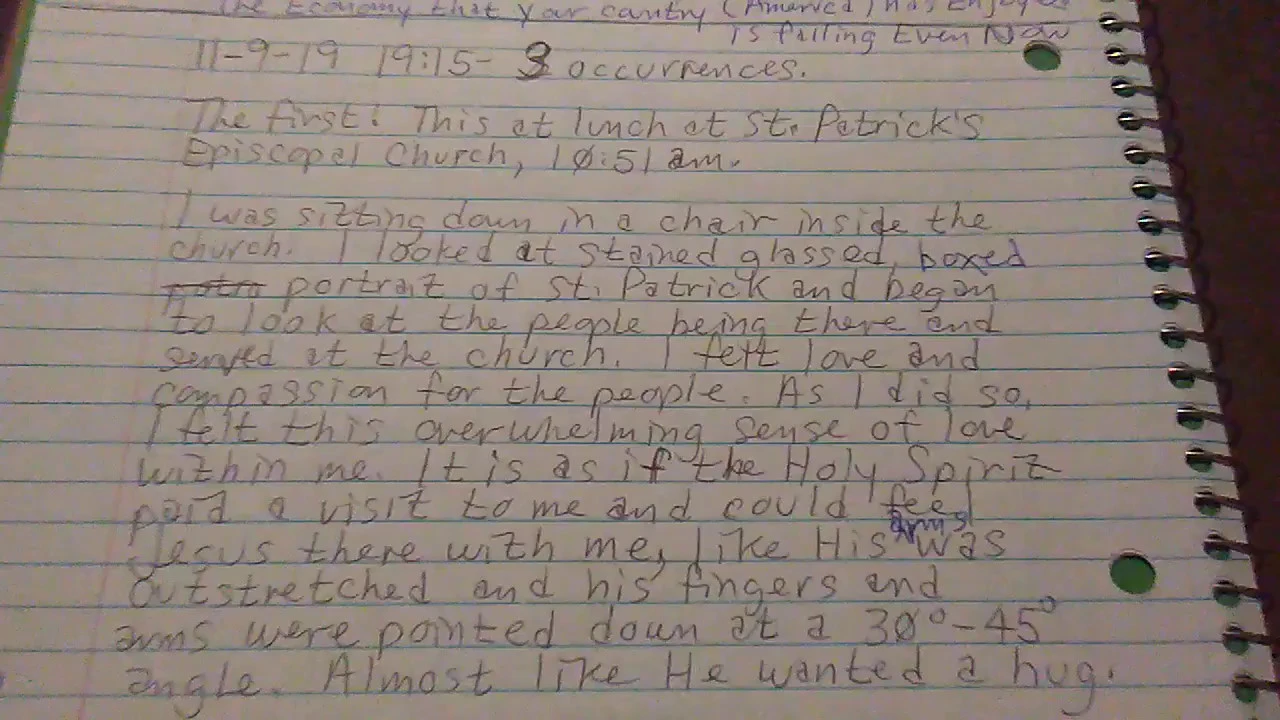 The Economy that your cantry (America) has Enjoyed
is falling Even Now
11-9-19 19:15- 3 occurrences.
The first: This at lunch at St. Patrick's
Episcopal Church, 10:51 am.
I was sitting down in a chair inside the
church. I looked at stained glassed, boxed
portrait of St. Patrick and began
to look at the people being there and
served at the church. I felt love and
compassion for the people. As I did so,
I felt this overwhelming sense of love
within me. It is as if the Holy Spirit
paid a visit to me and could feel
Jesus there with me, like His arms was
outstretched and his fingers and
arms were pointed down at a 30°-45°
angle. Almost like He wanted a hug.